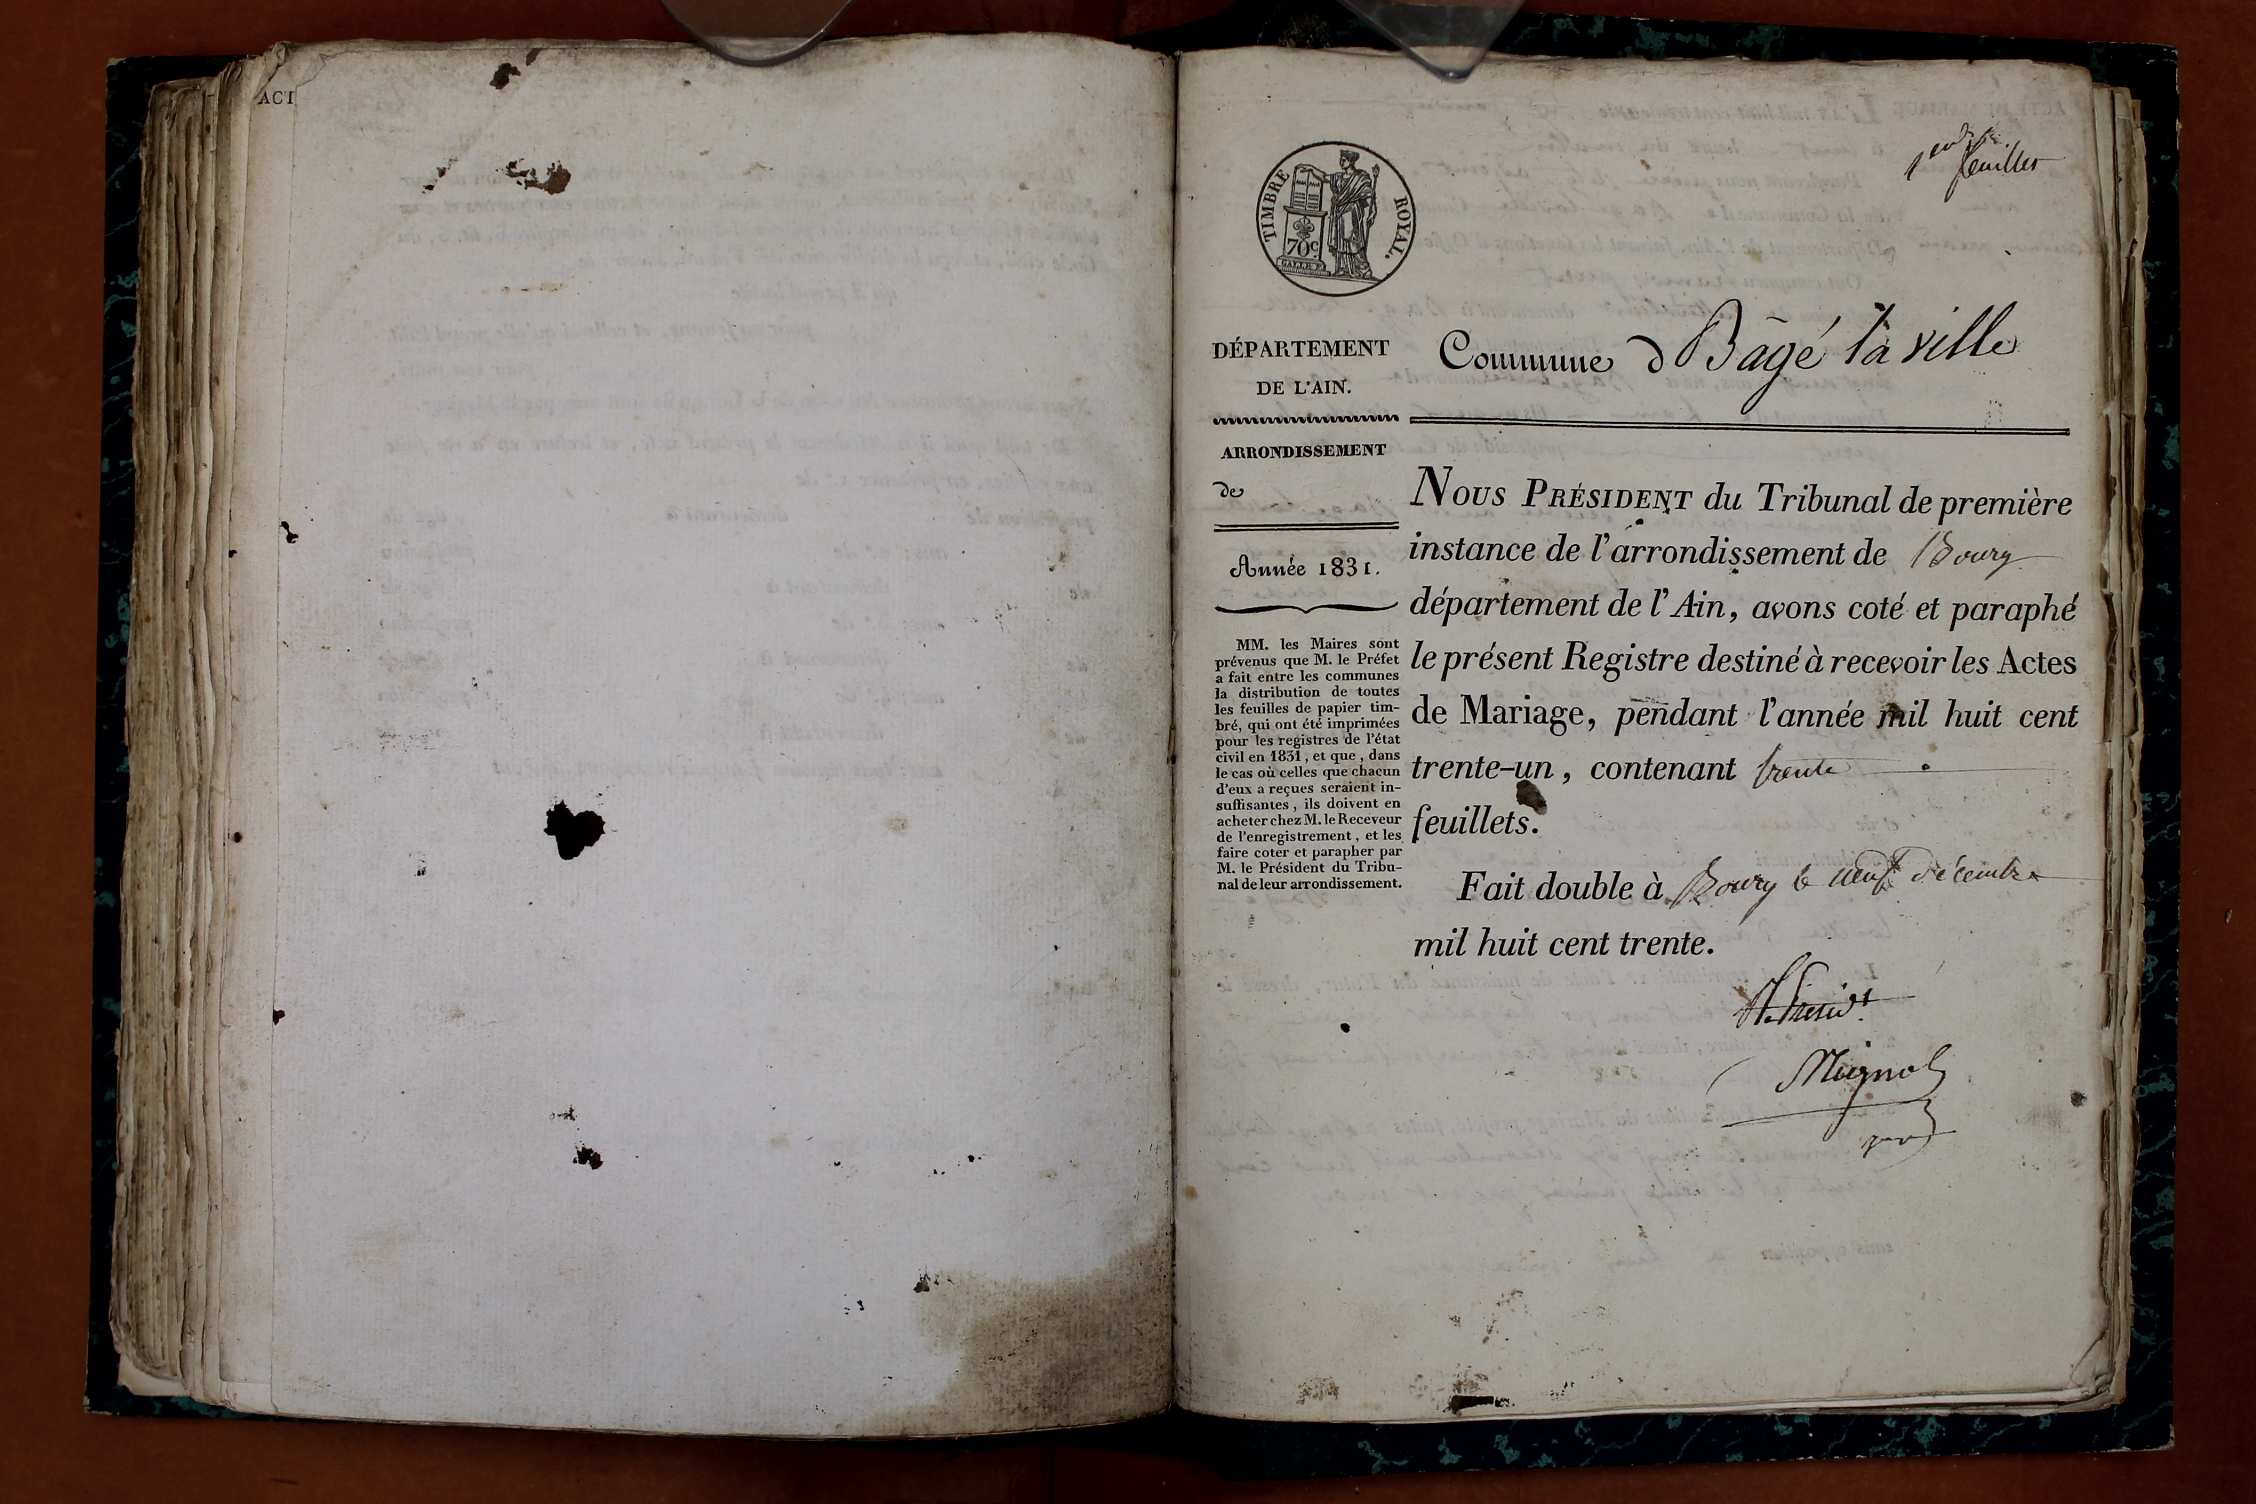 ACT
1er
feuillet
TIMBRE ROYAL.
70c
DÉPARTEMENT
DE L'AIN.
Commune d Bâgé la ville
ARRONDISSEMENT
de
Année 1831.
MM. les Maires sont
prévenus que M. le Préfet
a fait entre les communes
la distribution de toutes
les feuilles de papier tim-
bré, qui ont été imprimées
pour les registres de l'état
civil en 1831, et que, dans
le cas où celles que chacun
d'eux a reçues seraient in-
suffisantes, ils doivent en
acheter chez M. le Receveur
de l'enregistrement, et les
faire coter et parapher par
M. le Président du Tribu-
nal de leur arrondissement.
NOUS PRÉSIDENT du Tribunal de première
instance de l'arrondissement de Bourg
département de l'Ain, avons coté et paraphé
le présent Registre destiné à recevoir les Actes
de Mariage, pendant l'année mil huit cent
trente-un, contenant trente
feuillets.
Fait double à Bourg le neuf décembre
mil huit cent trente.